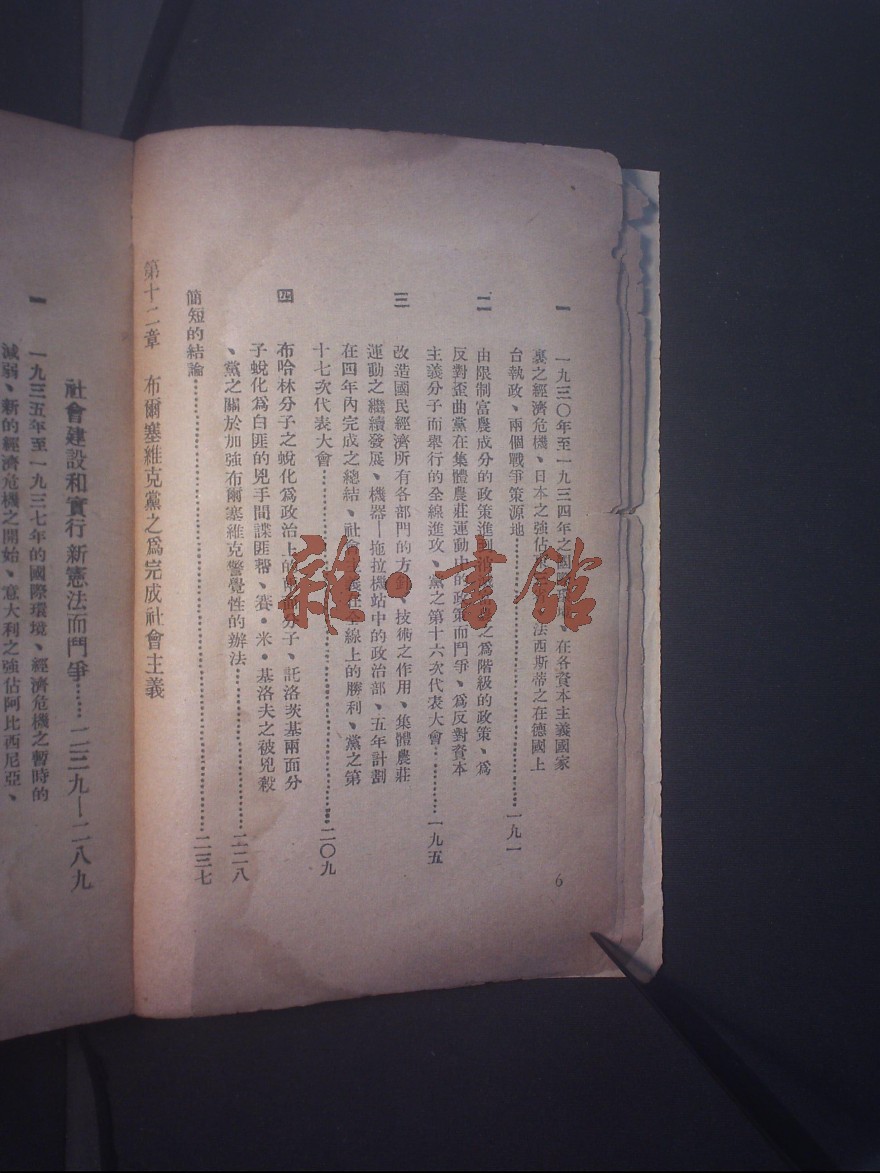 一 一九三〇年至一九三四年之國際環境、在各資本主義國家
裏之經濟危機、日本之強佔東 法西斯蒂之在德國上
台執政、兩個戰爭策源地……一九一
二 由限制富農成分的政策進到消滅 之爲階級的政策、爲
反對歪曲黨在集體農莊運動中的政策而鬥爭、爲反對資本
主義分子而舉行的全線進攻、黨之第十六次代表大會……一九五
三 改造國民經濟所有各部門的方針、技術之作用、集體農莊
運動之繼續發展、機器—拖拉機站中的政治部、五年計劃
在四年內完成之總結、社會主義在全線上的勝利、黨之第
十七次代表大會……二〇九
四 布哈林分子之蛻化爲政治上的兩面分子、託洛茨基兩面分
子蛻化爲白匪的兇手間諜匪幫、賽·米·基洛夫之被兇殺
、黨之關於加強布爾塞維克警覺性的辦法……二二八
簡短的結論……二三七
第十二章 布爾塞維克黨之爲完成社會主義
社會建設和實行新憲法而鬥爭……二三九—二八九
一 一九三五年至一九三七年的國際環境、經濟危機之暫時的
減弱、新的經濟危機之開始、意大利之強佔阿比西尼亞、
6
雜·書館